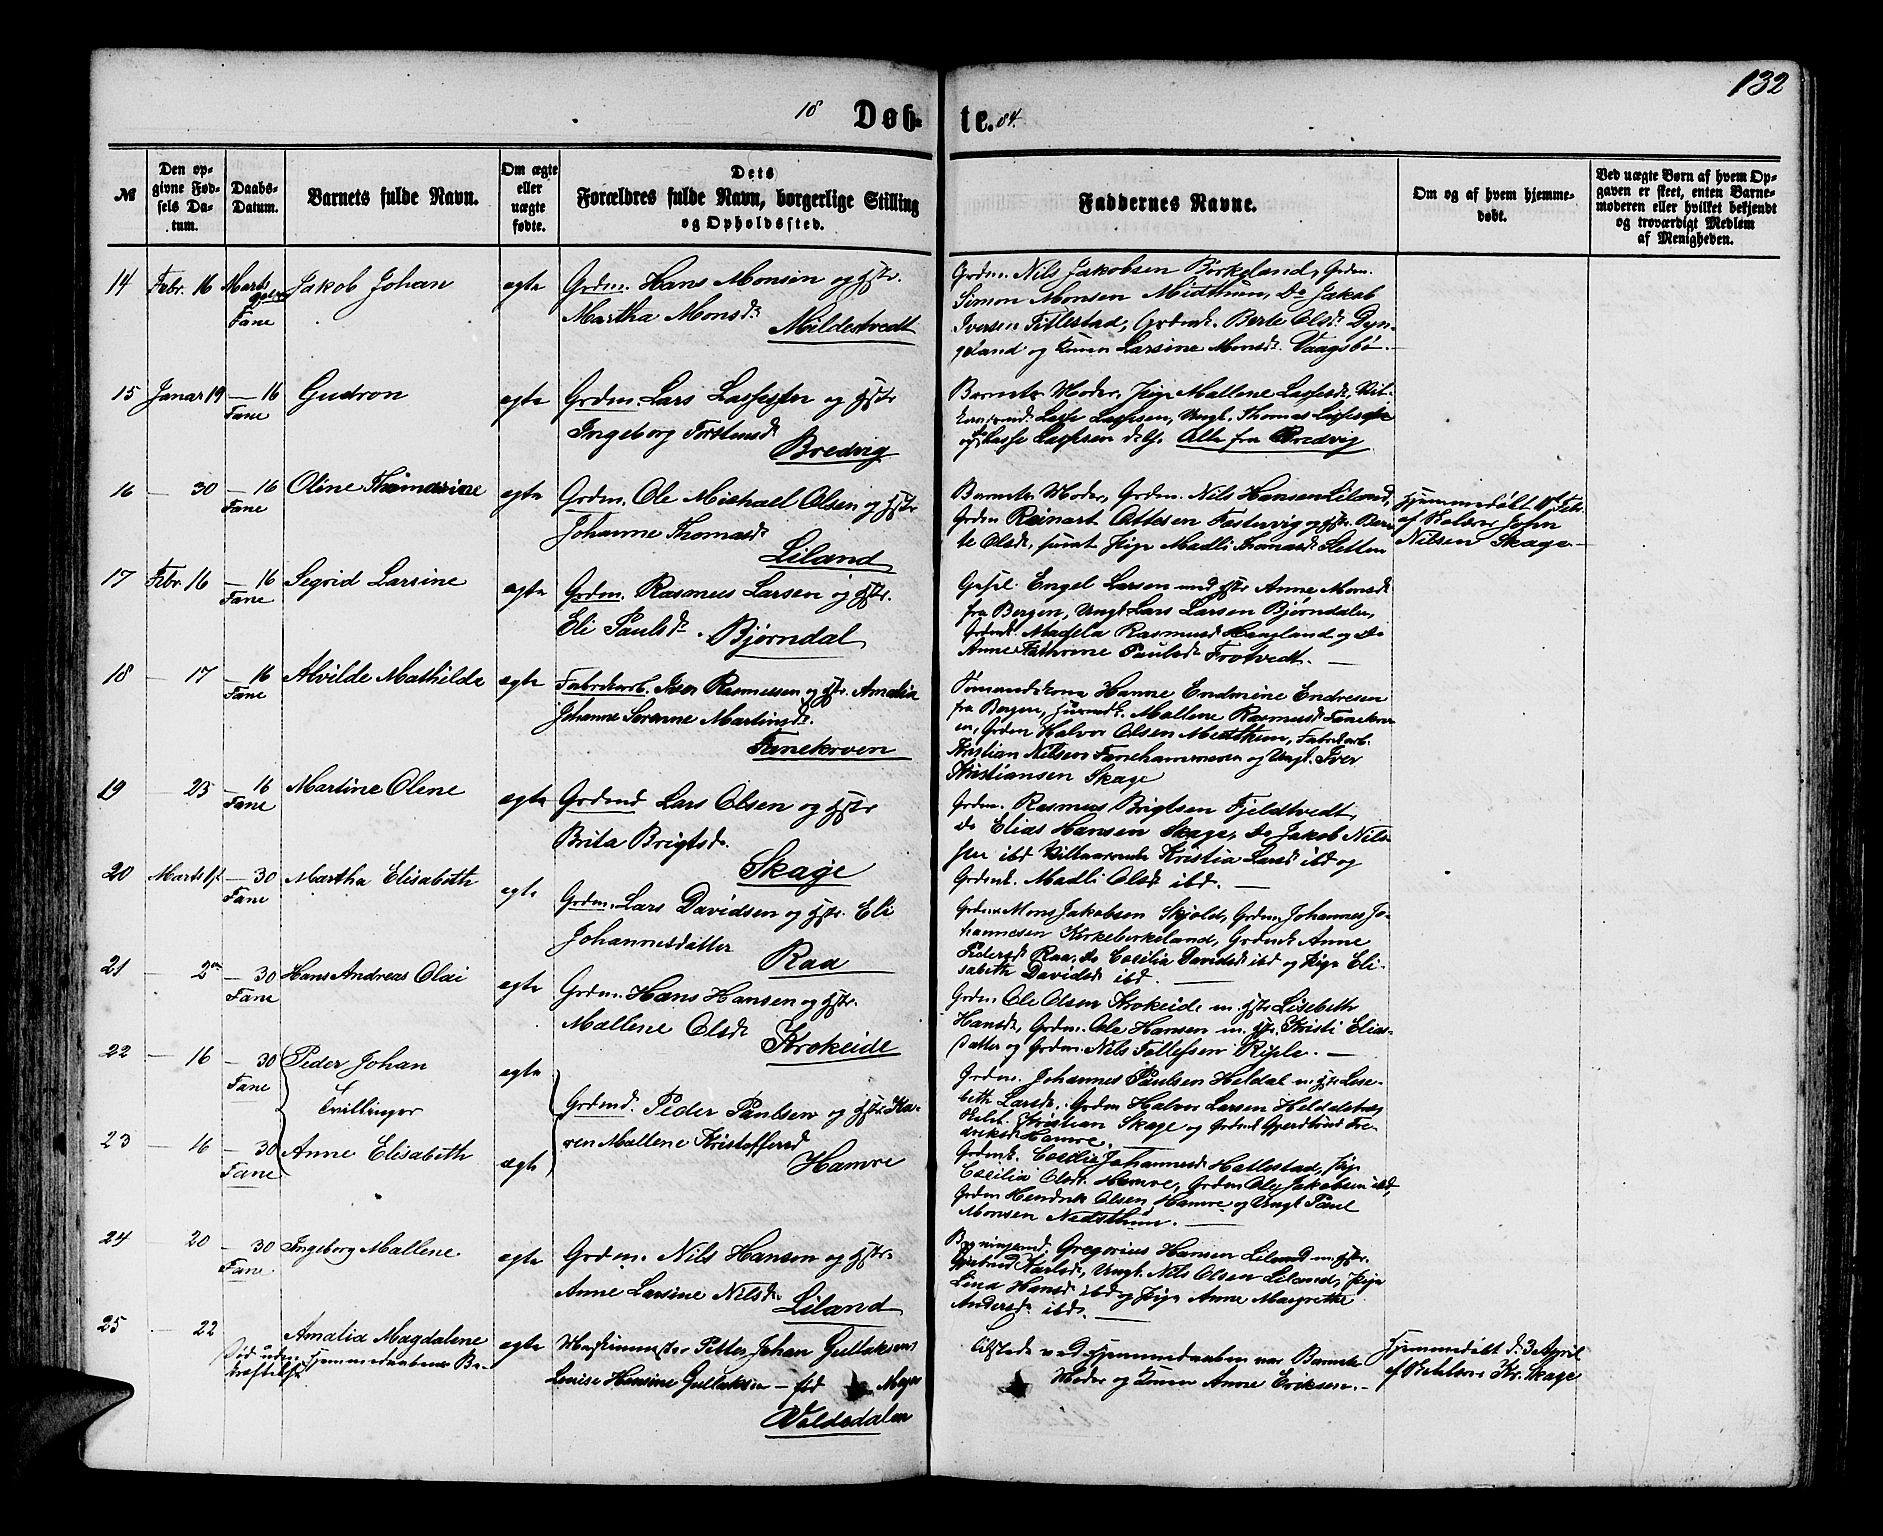 132
18 Døb- te. 84.
№
Den op-
givne Fød-
sels Da-
tum.
Daabs-
Datum.
Barnets fulde Navn.
Om ægte
eller
uægte
fødte.
Dets
Forældres fulde Navn, borgerlige Stilling
og Opholdssted.
Faddernes Navne.
Om og af hvem hjemme-
døbt.
Ved uægte Børn af hvem Op-
gaven er skeet, enten Barne-
moderen eller hvilket bekjendt
og troværdigt Medlem
af Menigheden.
14 Febr. 16 Marts Fane Jakob Johan egte Grdm. Hans Monsen og Hstr.
Martha Monsdr.
Mildestvedt
Grdm. Nils Jakobsen Børkeland, Grdm.
Simon Monsen Midthun, Do Jakob
Iversen Titlestad, Grdmk. Berte Olsdr. Dyn-
geland og Konen Larsine Monsdr. Vaagsbø.
15 Januar 19 — 16 Fane Gudron egte Grdm. Lars Lassesen og Hstr
Ingeborg Torstensdr
Bredvig
Barnets Moder, Pige Mallene Lassesdr,
Lasse Lassesen, Ungk. Thomas Lassesen
og Lasse Lassesen d.y. Alle fra Bredvig
16 — 30 — 16 Fane Oline Thomasine egte Grdm. Ole Michael Olsen og Hstr
Johanne Thomasdr
Liland
Barnets Moder, Grdm. Nils Hansen Liland,
Grdm Reinart Ottesen Fastervig og Hstr. Ber-
te Olsdr, samt Pige Madli Thomasdr Sletten
Hjemmedøbt Febr.
af Kirkes. John
Nilsen Skage
17 Febr. 16 — 16 Fane Segrid Larsine egte Grdm. Rasmus Larsen og Hstr.
Eli Paulsdr.
Bjørndal
Engel Larsen med Hstr Anne Monsdr
fra Bergen, Ungk. Lars Larsen Bjørndalen,
Grdmk. Magela Rasmusdr Haugland og Do
Anne Kathrine Paulsdr Frotvedt. —
18 — 17 — 16 Fane Alvilde Mathilde egte Fabrikarb. Iver Rasmussen og Hstr. Amalia
Johanne Sørenne Martinsdr.
Fanekroen
Sømandskone Hanne Endmine Endresen
fra Bergen, Husmk. Mallene Rasmusdr Fanekro-
en, Grdm Halvor Olsen Midthun, Fabrikarb.
Kristian Nilsen Fanehammeren og Ungk. Iver
Kristiansen Skage
19 — 23 — 16 Fane Martine Olene egte Grdmd Lars Olsen og Hstr
Brita Brigtsdr.
Skage
Grdm. Rasmus Brigtsen Fjeldtvedt,
Do Elias Hansen Skage, Do Jakob Nils-
sen ibd Kristia Larsdr ibd og
Grdmk. Madli Olsdr ibd. —
20 Marts — 30 Fane Martha Elisabeth egte Grdm. Lars Davidsen og Hstr. Eli
Johannesdatter
Raa
Grdm Mons Jakobsen Skjold, Grdm Johannes Jo-
hannesen Kirkebirkeland, Grdmk Anne
Pedersdr Raa, Do Cecilia Davidsdr ibd og Pige Eli-
sabeth Davidsdr ibd. —
21 — 2den — 30 Fane Hans Andreas Olai egte Grdm. Hans Hansen og Hstr.
Mallene Olsdr
Krokeide
Grdm. Ole Olsen Krokeide m. Hstr Lisebeth
Hansdr, Grdm. Ole Hansen m. Hstr. Kristi Elias-
datter og Grdm. Nils Tollefsen Riple. —
22 — 16 — 30 Fane Peder Johan egte
Tvillinger
Grdmd. Peder Paulsen og Hstr Ka-
ren Mallene Kristoffersdr
Hamre
Grdm. Johannes Paulsen Heldal m Hstr Lise-
beth Larsdr. Grdm Halvor Larsen Heldalstræ,
Kristian Skage og Grdmk Gjertrud Fre-
driksdr Hamre. —
23 — 16 — 30 Fane Anne Elisabeth egte
Grdmk. Cecilia Johannesdr Hatlestad, Pige
Cecilia Olsdr. Hamre, Grdm Ole Jakobsen ibd,
Grdm Hendrik Olsen Hamre og Ungk Paul
Monsen Nedsthun. —
24 20 — 30 Fane Ingeborg Mallene egte Grdm. Nils Hansen og Hstr.
Anne Larsine Nilsdr
Liland
Gregorius Hansen Liland m Hstr.
Gjertrud Karlsdr, Ungk. Nils Olsen Liland, Pige
Lina Hansdr ibd og Pige Anne Margrethe
Andersdr ibd. —
25 — 22 Amalia Magdalene egte Petter Johan Gullaksen
Død uden Hjemmedaabens Be-
kræftelse
Louise Hansine Gullaksen — fød Meyer
Valdsdalen
Tilstede ved Hjemmedaaben var Barnets
Moder og Konen Anne Eriksen. —
Hjemmedøbt d. 3 April
af Kr. Skage